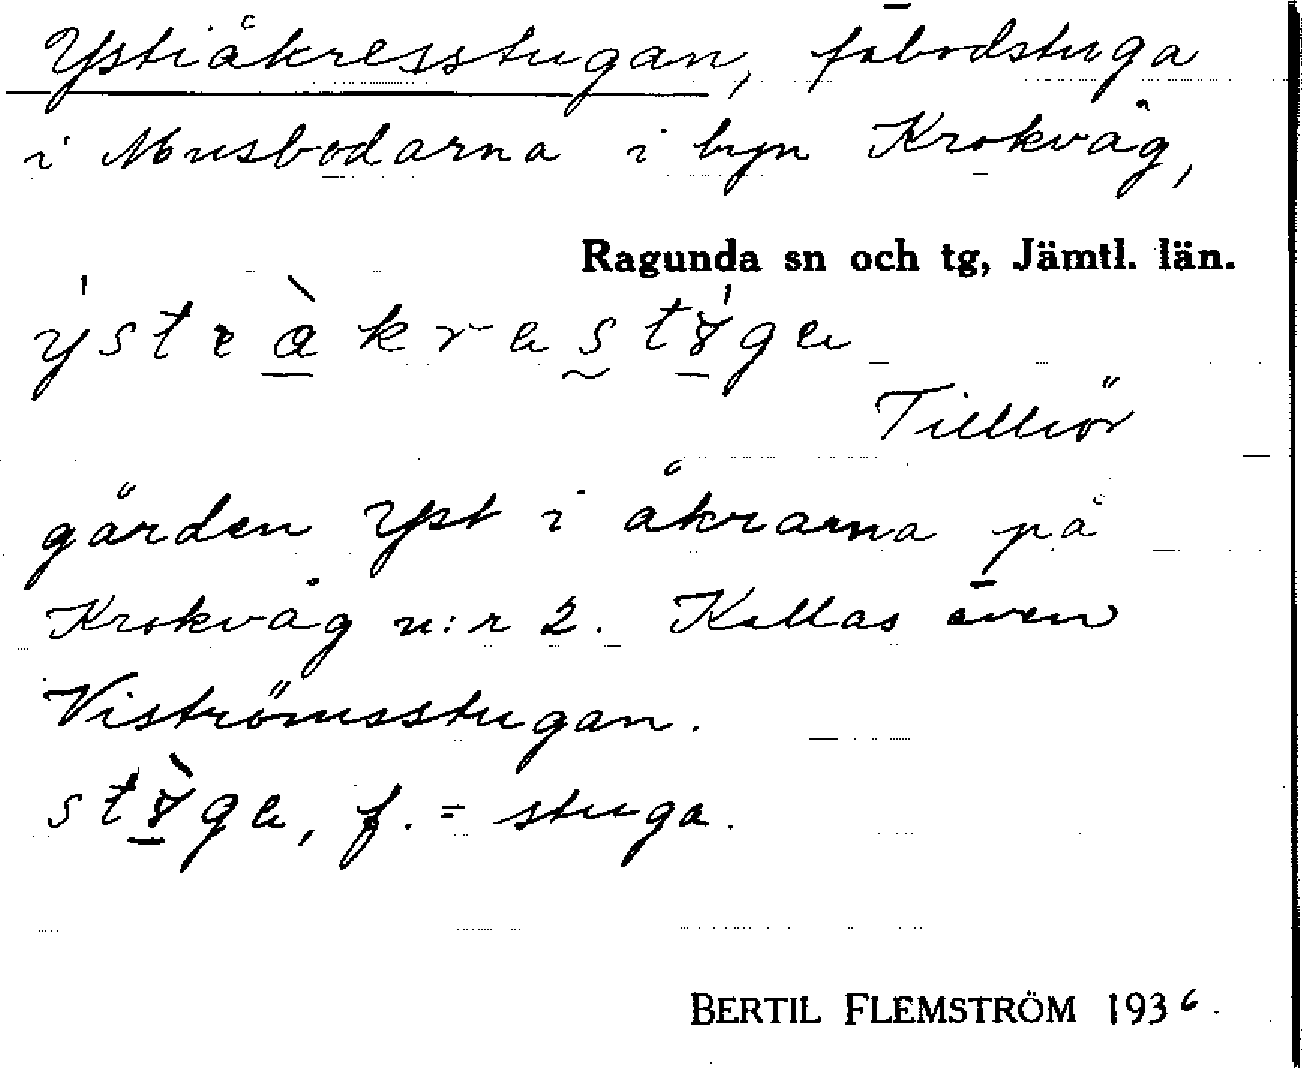 Ystiåkresstugan, fäbodstuga
i Musbodarna i byn Krokvåg,
Ragunda sn och tg, Jämtl. län.
Tillhör
gården Yst i åkrarna på
Krokvåg n:r 2. Kallas även
Viströmsstugan.
f. = stuga.
BERTIL FLEMSTRÖM 1936.